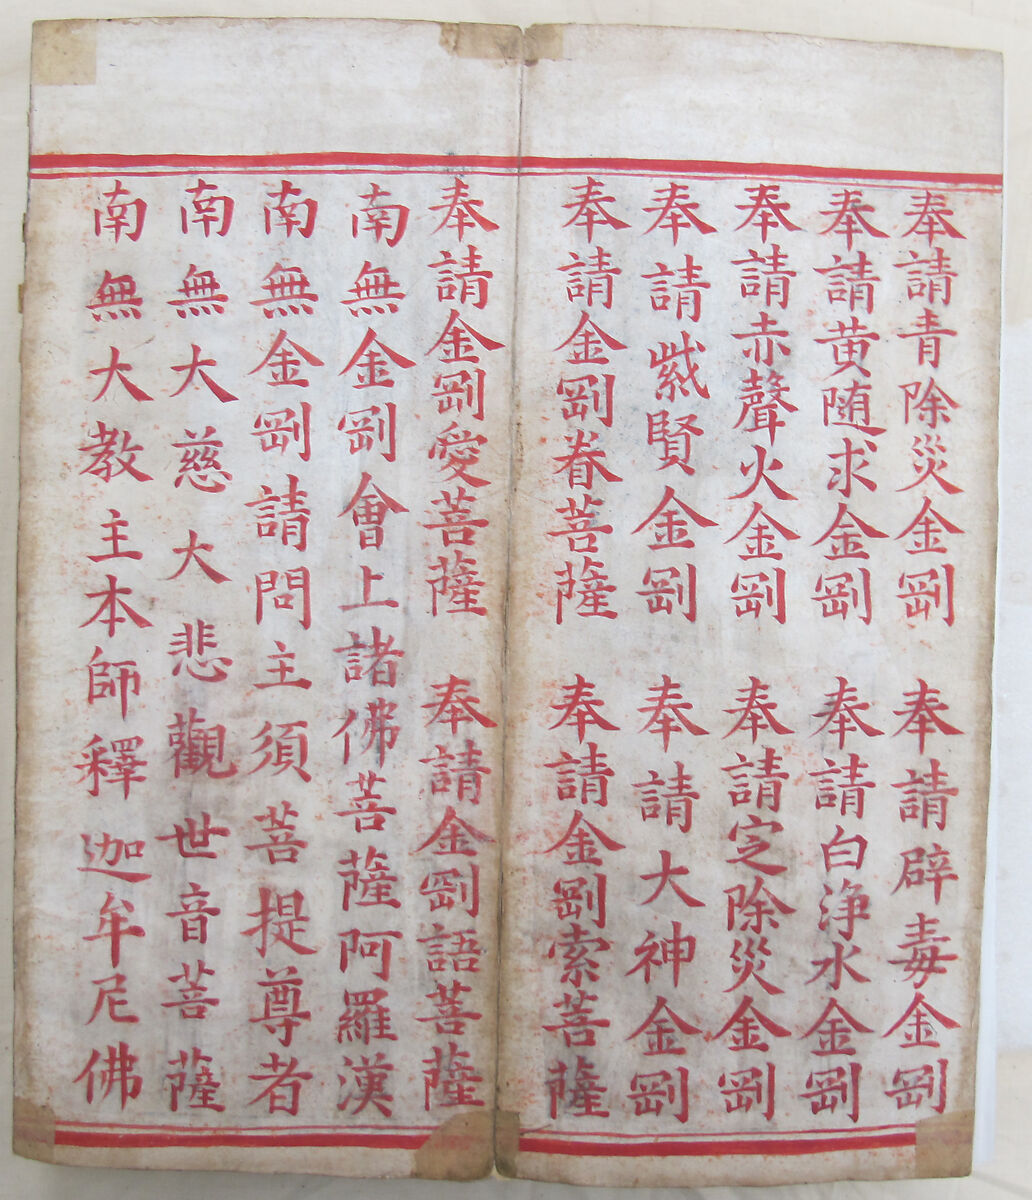 奉請青除災金剛　奉請辟毒金剛
奉請黄随求金剛　奉請白浄水金剛
奉請赤聲火金剛　奉請定除災金剛
奉請紫賢金剛　奉請大神金剛
奉請金剛眷菩薩　奉請金剛索菩薩
奉請金剛愛菩薩　奉請金剛語菩薩
南無金剛會上諸佛菩薩阿羅漢
南無金剛請問主須菩提尊者
南無大慈大悲觀世音菩薩
南無大教主本師釋迦牟尼佛